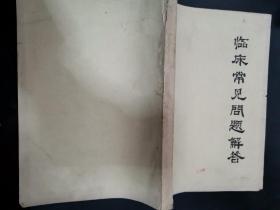 临床常见問题解答